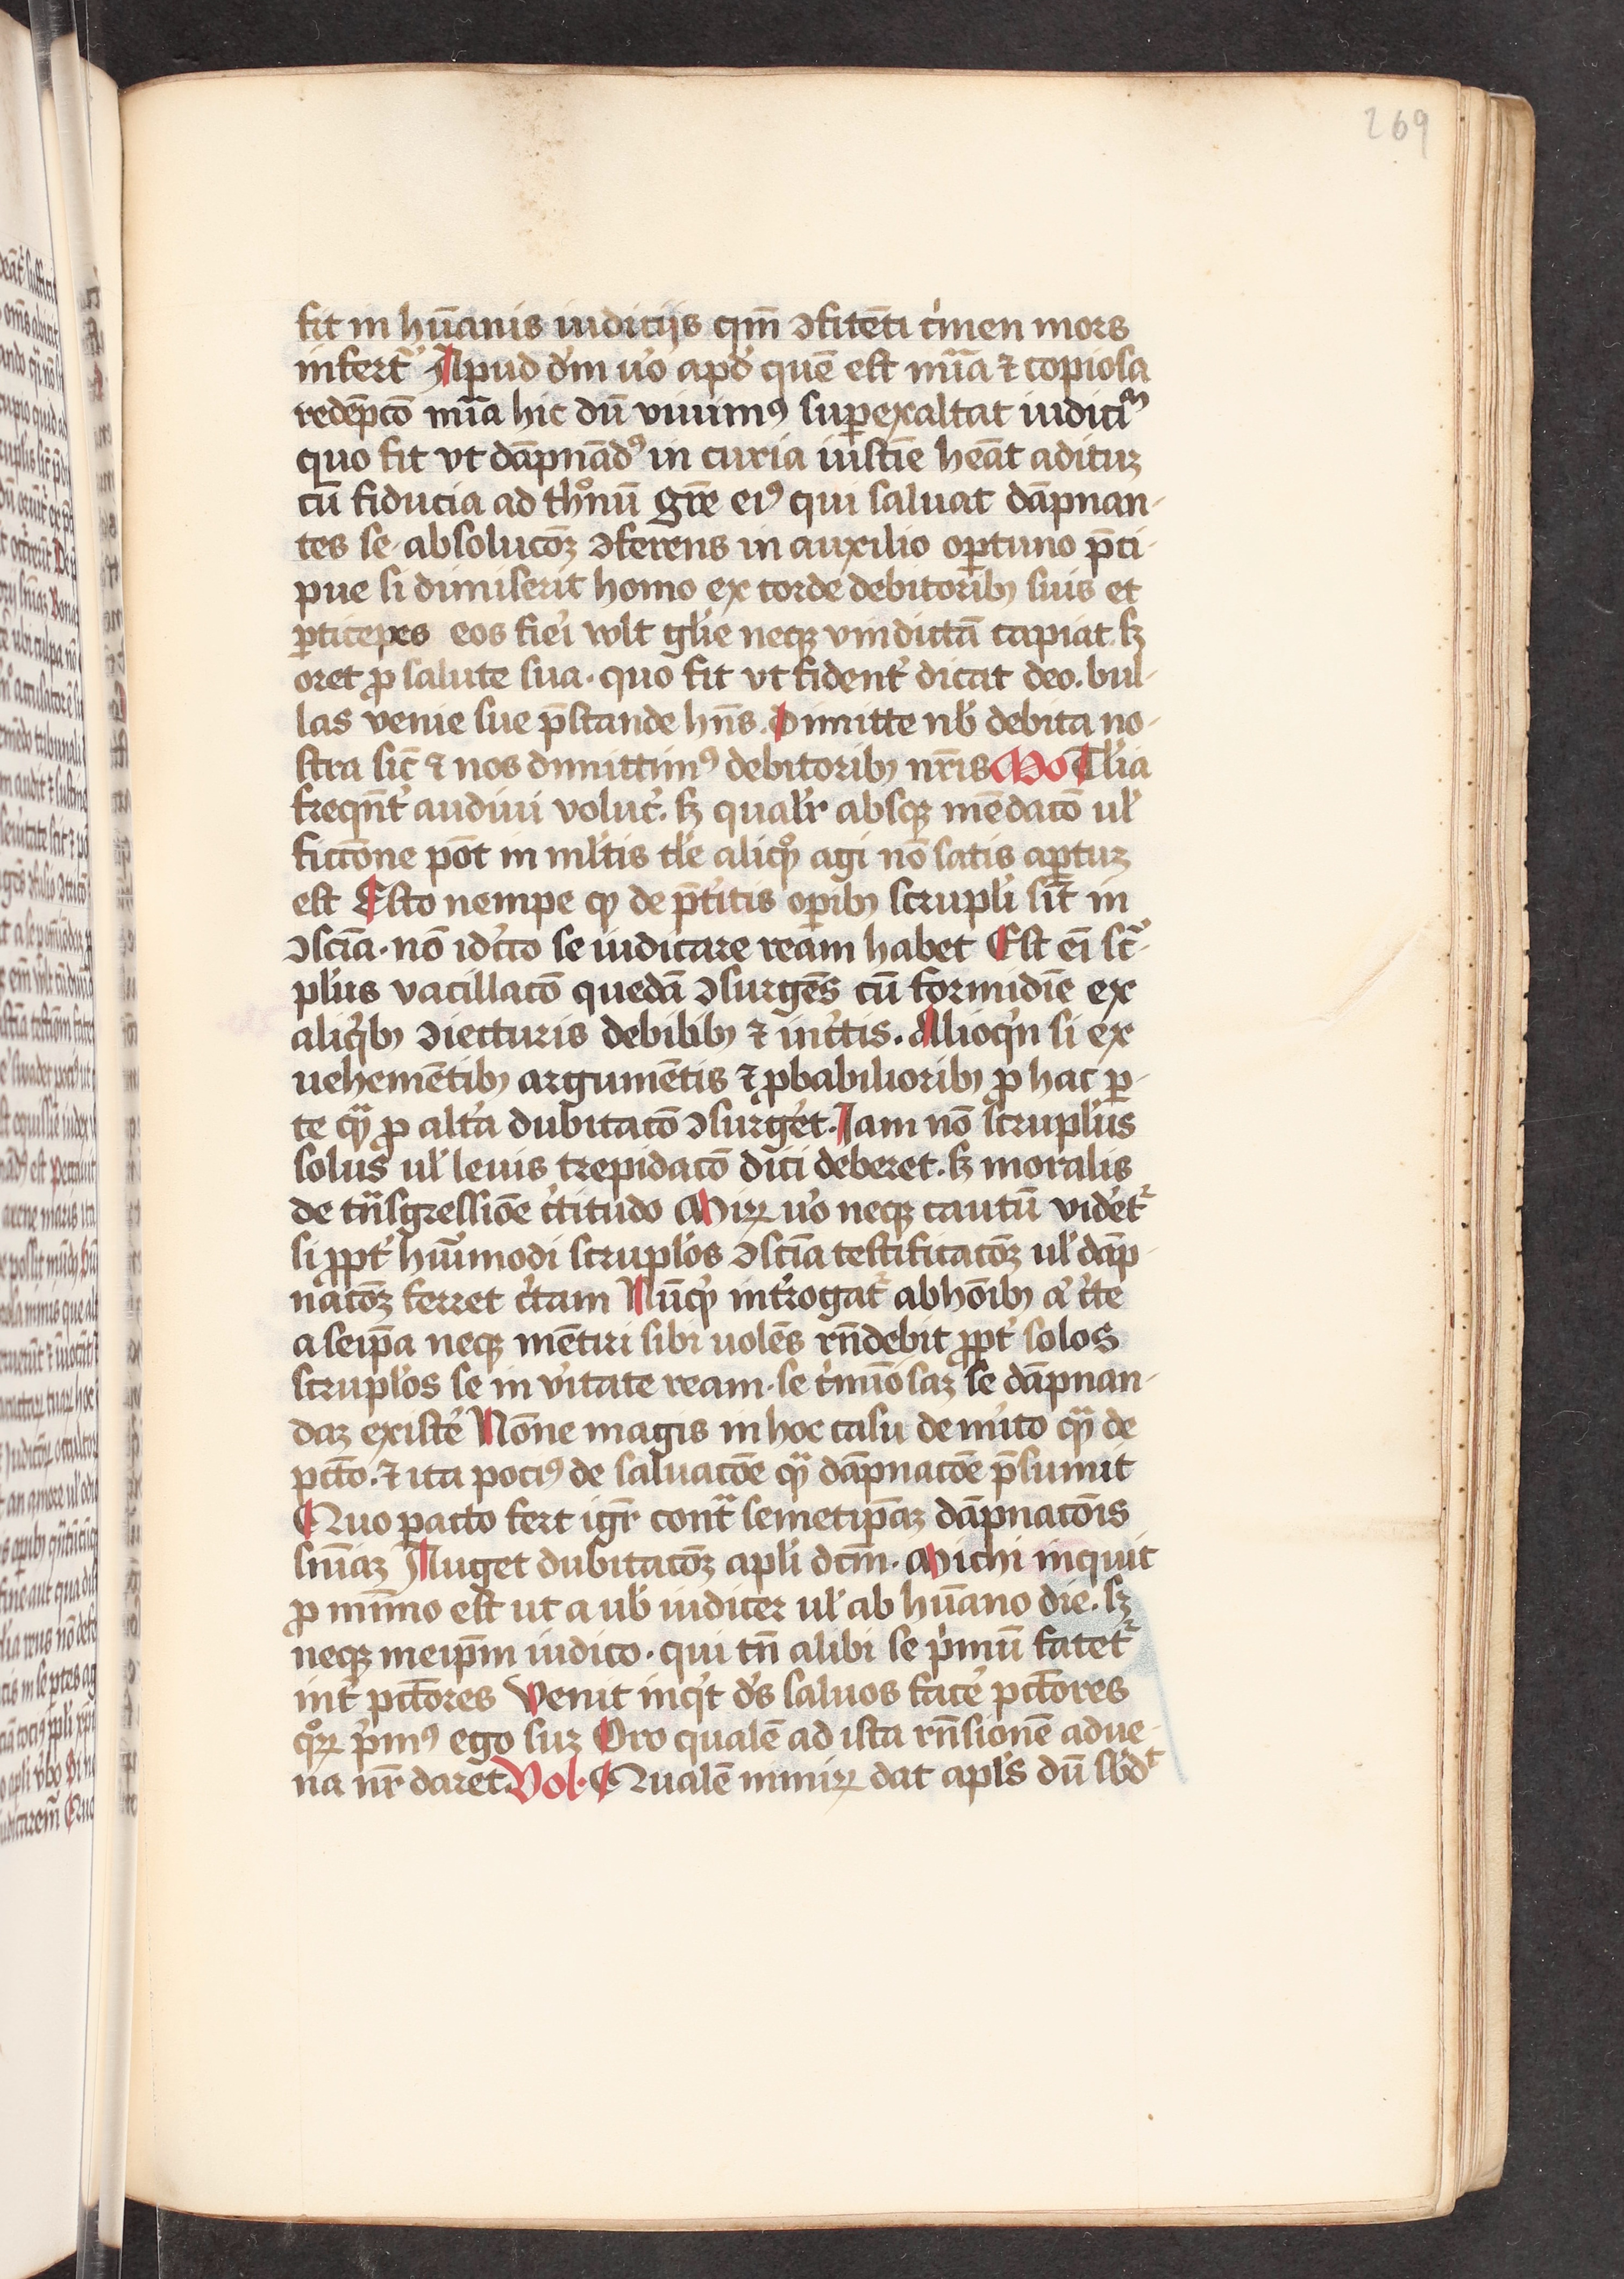 269
fit in hūanis iudicijs qm̄ ↄfitēti c'men mors
infert᷑ Apud dm̄ u'o apd' quē est mīa ⁊ copiosa
redēpcō mīa hic dū viuimꝰ suꝑexaltat iudiciᵐ
quo fit vt dāpnādꝰ in curia iusticie heāt adituꝫ
cū fiducia ad thͦnū grē eiꝰ qui saluat dāpnan-
tes se· absolucōꝫ ↄferens in auxilio oꝑtuno p̄ci-
pue si dimiserit homo ex corde debitoribꝫ suis et
ꝑticipes eos fie'i vult gl'ie neqꝫ vindictā capiat. sꝫ
oret ꝓ salute sua· quo fit vt fident' dicat deo. bul-
las venie sue p̄stande hn̄s. Dimitte nb' debita no-
stra sic̄ ⁊ nos dimittimꝰ debitoribꝫ nr̄is Mo Tl'ia
freqn̄t' audiui voluc'. sꝫ qual'r absqꝫ mēdacō ul'
ficcōne pōt in ml'tis tl'e aliqͦ agi nō satis aꝑtuꝫ
est Esto nempe qꝫ de p̄t'itis oꝑibꝫ scrupl'i sīt in
ↄsciā· nō idc'co se iudicare ream habet Est ei̅ sc᷑-
pl'us vacillacō quedā ↄsurgēs cū formidīe ex
aliqⁱbꝫ ↄiecturis debilibꝫ ⁊ inc'tis. Alioqⁱn si ex
uehemētibꝫ argumētis ⁊ ꝓbabilioribꝫ ꝓ hac ꝑ-
te qᷓ ꝓ alt'a dubitacō ↄsurg'et. Iam nō scrupl'us
solus ul' leuis trepidacō dīci deberet. sꝫ moralis
de tn̄sgressiōe c'titudo Miꝝ u'o neqꝫ cautū vid'et᷑
si ꝓpt' hui̅modi scrupl'os ↄsciā testificacōꝫ ul' dāp-
nacōꝫ ferret c'tam Nūqͥ int'rogat᷑ ab hōibꝫ a' c'te
a seip̄a neqꝫ mētiri sibi uolēs rn̄debit ꝓpt' solos
scrupl'os se in v'itate ream· se c'miōsaꝫ se dāpnan-
daꝫ existe' Nōne magis in hoc casu de m'ito qᷓ de
pctō. ⁊ ita pociꝰ de saluacōe qᷓ dāpnacōe p̄sumit
Quo pacto fert igr̄ cont̄ semetip̄aꝫ dāpnacōis
sn̄iaꝫ Auget dubitacōꝫ apl'i dcm̄. Michi inquit
ꝓ mīmo est ut a ub' iudicer ul' ab hūano die. sꝫ
neqꝫ meip̄m iudico· qui tn̄ alibi se p'mū fatet᷑
int' pctōres Venit inqⁱt d's saluos face' pctōres
qͦꝝ p'mꝰ ego suꝫ Oro qualē ad ista rn̄sionē adue-
na nr̄ daret. Vol· Qualē nimiꝝ dat apl's dū sb'dᵗ